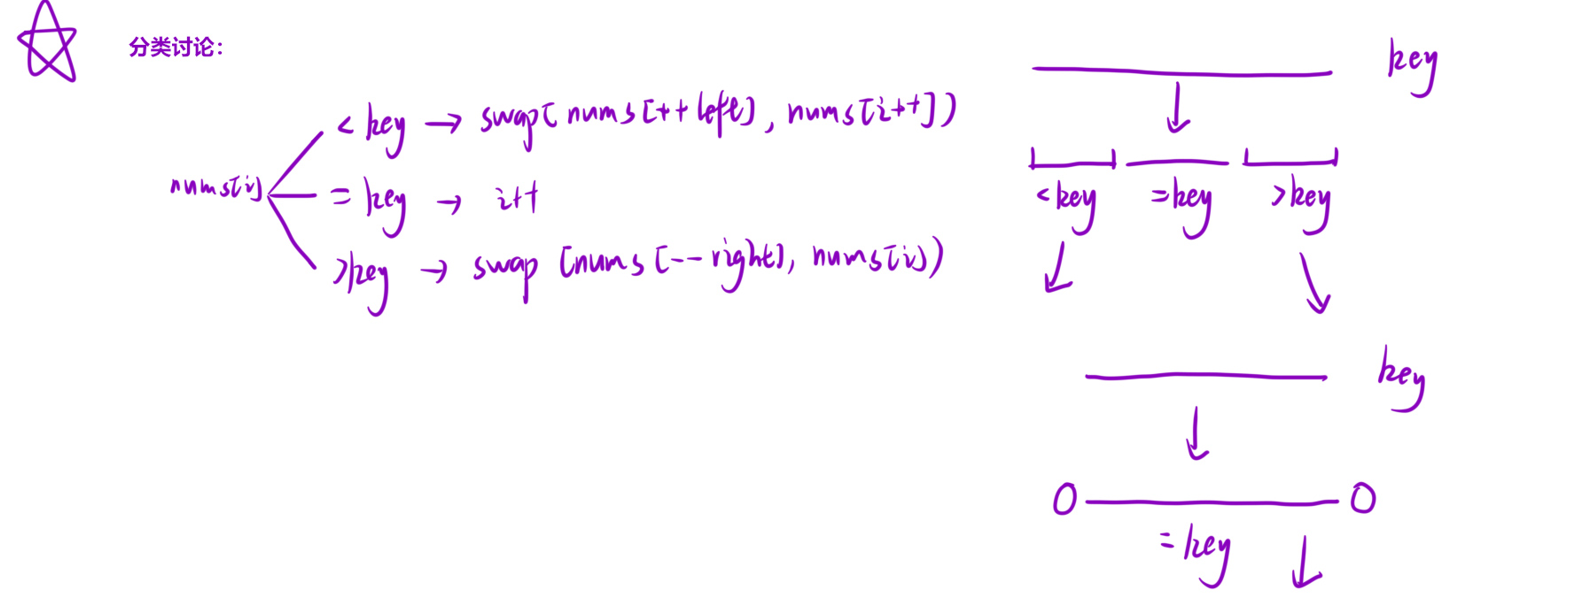 分类讨论：
nums[i]
< key → swap[nums[++left], nums[i++])
= key → i++
>key → swap [nums[--right], nums[i])
key
<key =key >key
key
0 0
=key